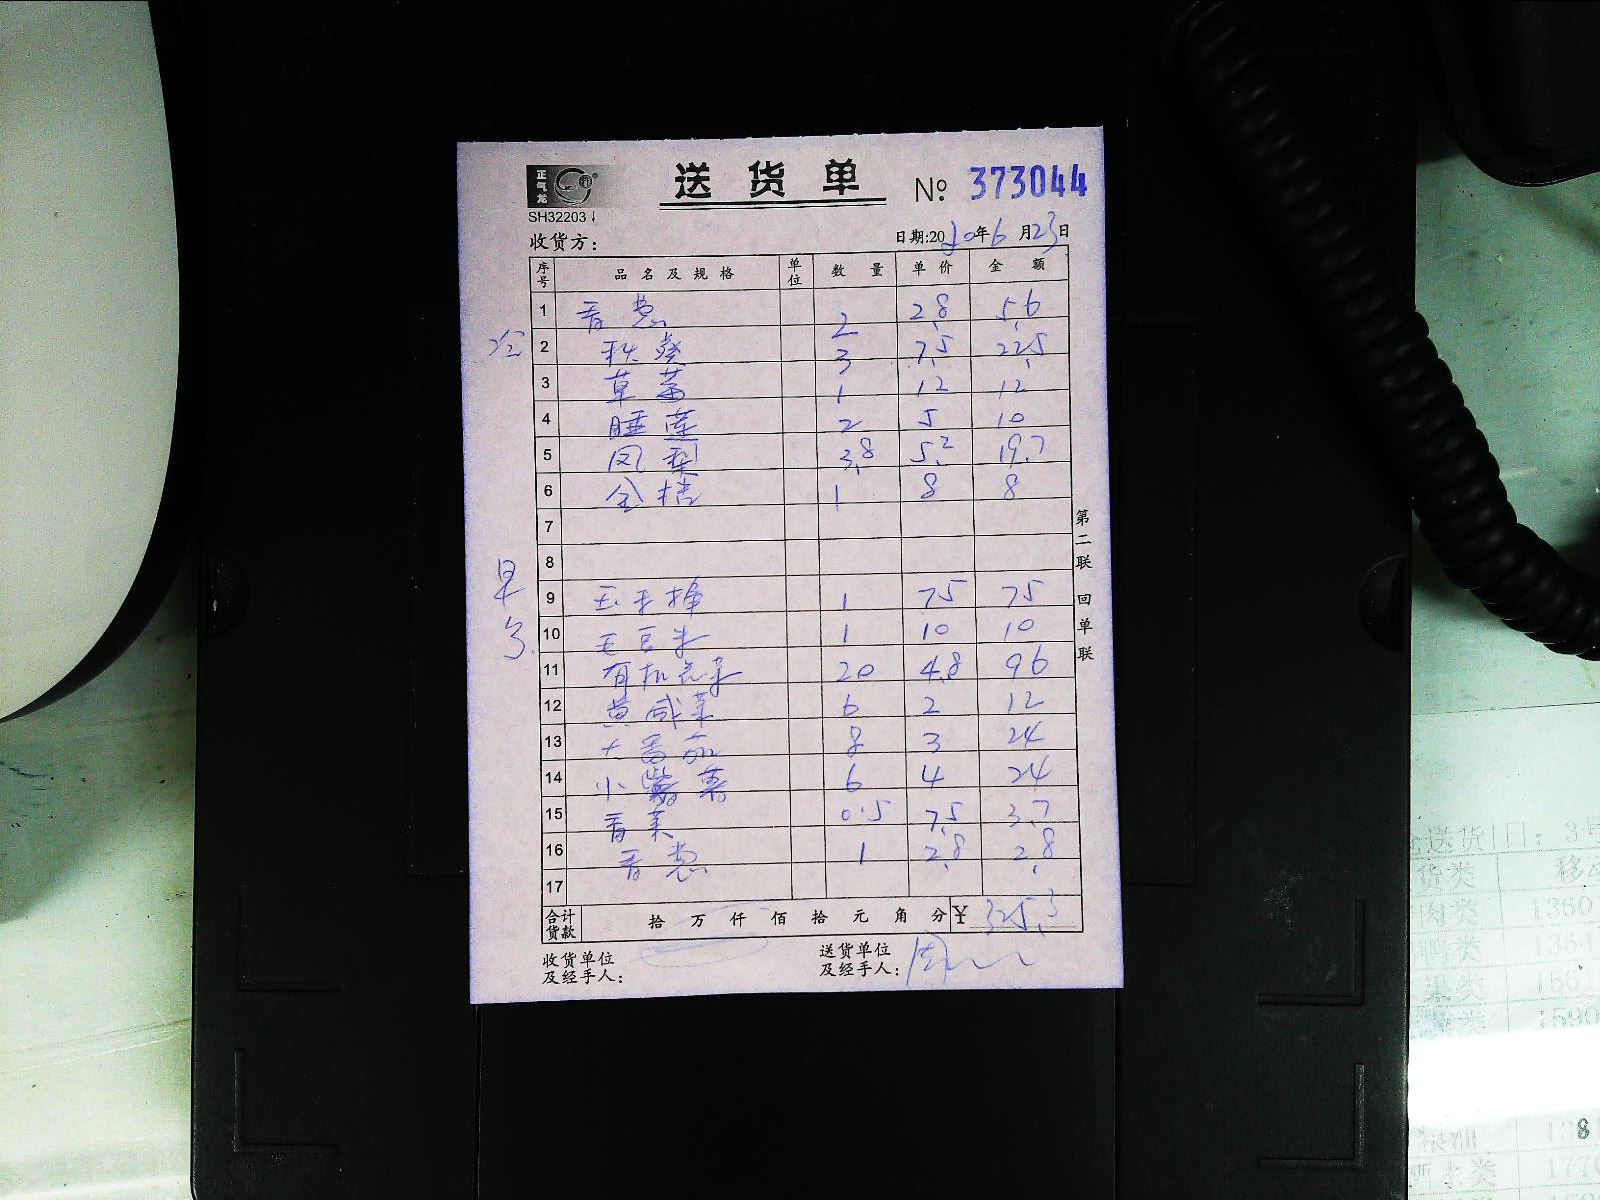 正气龙
送货单 № 373044
SH32203
收货方： 日期:2020年6月23日
序号 品名及规格 单位 数量 单价 金额
1 香葱 2 2.8 5.6
2 秋葵 3 7.5 22.5
3 草莓 1 12 12
4 睡莲 2 5 10
5 凤梨 3.8 5.2 19.7
6 金桔 1 8 8
7
8
早
9 1 75 75
10 毛豆米 1 10 10
11 有机花菜 20 4.8 96
12 黄咸菜 6 2 12
13 大番茄 8 3 24
14 小紫薯 6 4 24
15 香菜 0.5 7.5 3.7
16 香葱 1 2.8 2.8
17
合计货款 拾 万 仟 佰 拾 元 角 分 ¥ 325.3
收货单位及经手人： 送货单位及经手人：
第二联 回单联
送货 日：3
货类
肉类 1350
鸭类
果类
类 1590